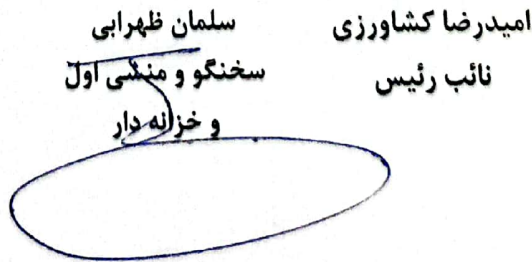 امیدرضا کشاورزی
نائب رئیس
سلمان ظهرابی
سخنگو و منشی اول
و خزانه دار